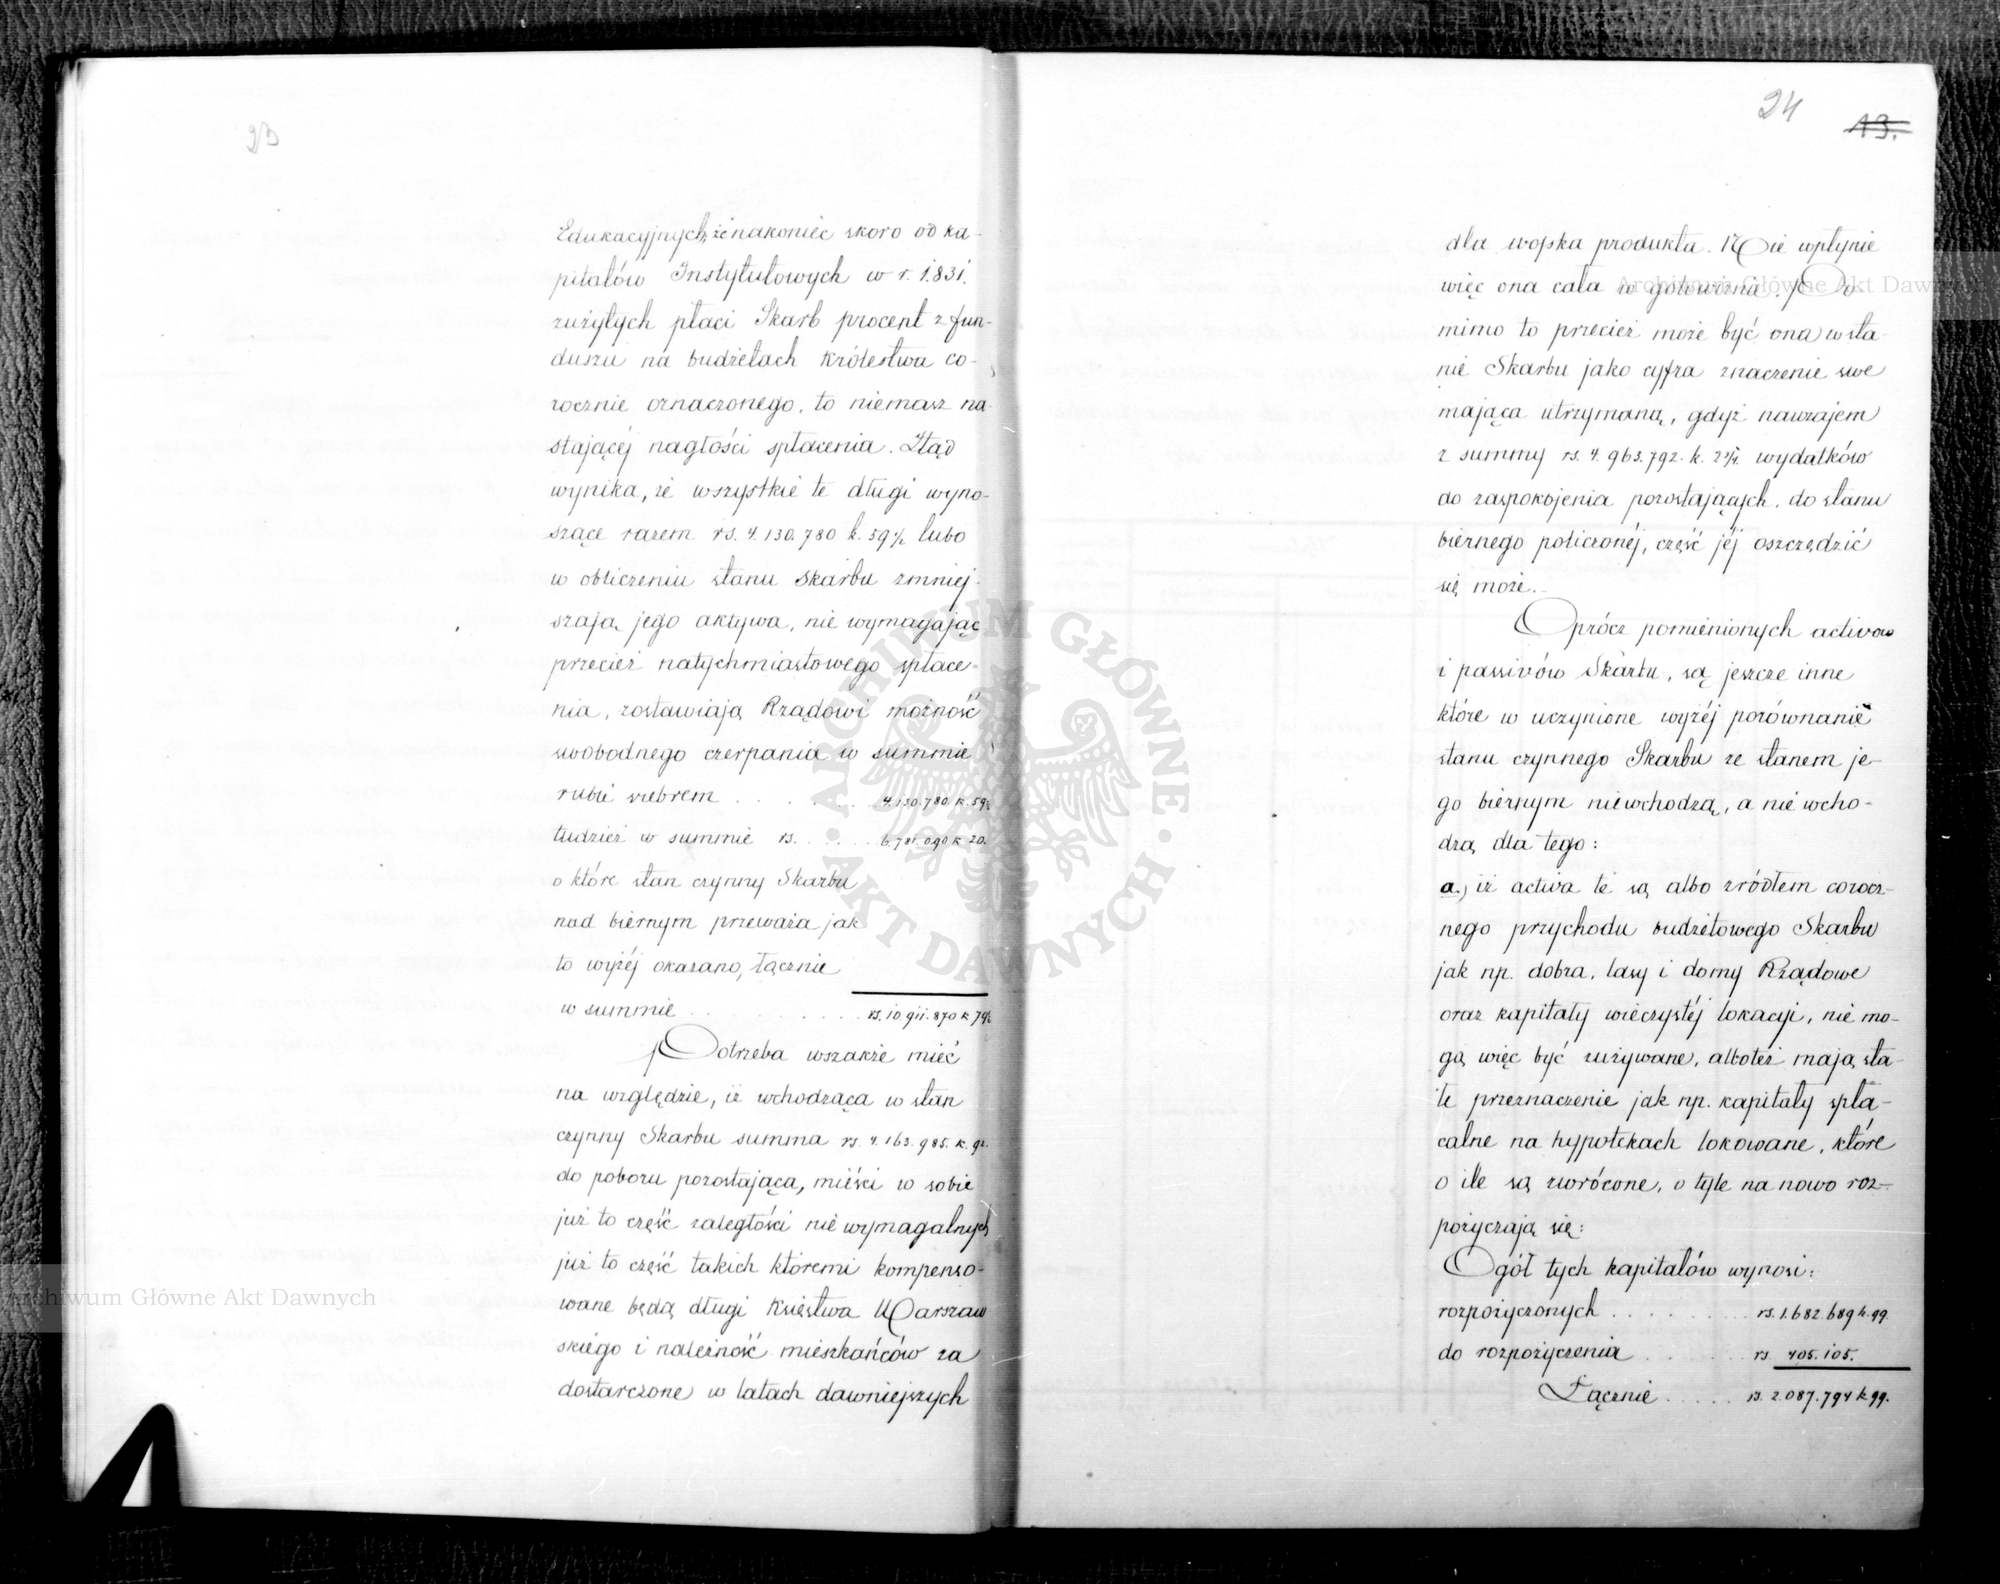 23
Edukacyjnych, że nakoniec skoro od ka-
pitałów Instytutowych w r. 1831.
zużytych płaci Skarb procent z fun-
duszu na budżetach Królestwa co-
rocznie oznaczonego, to niemasz na-
stającéj nagłości spłacenia. Ztąd
wynika, że wszystkie te długi wyno-
szące razem rs. 4.130.780 k. 59½ lubo
w obliczeniu stanu Skarbu zmniej-
szają jego aktywa, nie wymagając
przecież natychmiastowego spłace-
nia, zostawiają Rządowi możność
swobodnego czerpania w summie
rubli srebrem . . . . . . . 4.130.780 k. 59½
tudzież w summie rs. . . . . . 6.781.090 k 20.
o które stan czynny Skarbu
nad biernym przeważa jak
to wyżéj okazano, łącznie
w summie . . . . . . . . . . rs. 10.911.870 k 79½
Potrzeba wszakże mieć
na względzie, iż wchodząca w stan
czynny Skarbu summa rs. 4.163.985. k. 92.
do poboru pozostająca, mieści w sobie
już to część zaległości nie wymagalnych
już to część takich któremi kompenso-
wane będą długi Księstwa Warszaw
skiégo i należność mieszkańców za
dostarczone w latach dawniejszych
24
13.
dla wojska produkta. Nie wpłynie
więc ona cała w gotowiźnie. Po
mimo to przecież może być ona w sta-
nie Skarbu jako cyfra znaczenie swe
mająca utrzymaną, gdyż nawzajem
z summy rs. 4.963.792. k. 22¼ wydatków
do zaspokojenia pozostających, do stanu
biernego policzonéj, część jéj oszczędzić
się może.
Oprócz pomienionych activów
i passivów Skarbu, są jeszcze inne
które w uczynione wyżéj porównanie
stanu czynnego Skarbu ze stanem je-
go biernym niewchodzą, a nie wcho-
dzą dla tego:
a.) iż activa te są albo źródłem corocz-
nego przychodu budżetowego Skarbu
jak np. dobra, lasy i domy Rządowe
oraz kapitały wieczystéj lokacyi, nie mo-
gą więc być zużywane, alboteż mają sta-
łe przeznaczenie jak np. kapitały spła-
calne na hypotekach lokowane, które
o ile są zwrócone, o tyle na nowo roz-
pożyczają się:
Ogół tych kapitałów wynosi:
rozpożyczonych . . . . . . . . . rs. 1.682.689 k. 99.
do rozpożyczenia . . . . . . . rs 405.105.
Łącznie . . . . . rs. 2.087.794 k 99.
ARCHIWUM GŁÓWNE
AKT DAWNYCH
Archiwum Główne Akt Dawnych
Archiwum Główne Akt Dawnych